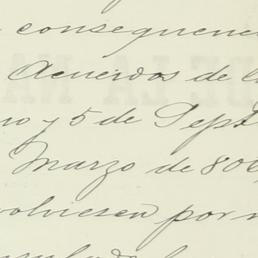 consequenci
Acuerdos de l
no y 5 de Sept
Marzo de 80
volviesen por